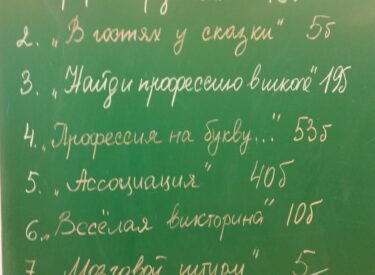 2. „В гостях у сказки" 5б
3. „Найди профессию в школе" 19б
4. „Профессия на букву..." 53б
5. „Ассоциация" 40б
6. „Весёлая викторина" 10б
7. „Мозговой штурм" 5